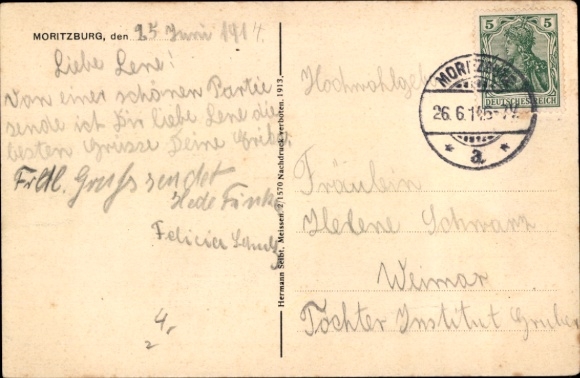 MORITZBURG, den 25 Juni 1914.
Liebe Lene!
Von einer schönen Partie
sende ich Dir liebe Lene die
besten Grüsse Deine
Frdl. Gruss sendet
Hede
Felicia
4.
2
Hermann Seibt, Meissen. 2/1570 Nachdruck verboten. 1913.
5 5
DEUTSCHES REICH
MORITZBURG
26.6.14. 6-7V.
* a. *
Hochwohlgeb
Fräulein
Helene Schwarz
Weimar
Töchter Institut Gruber